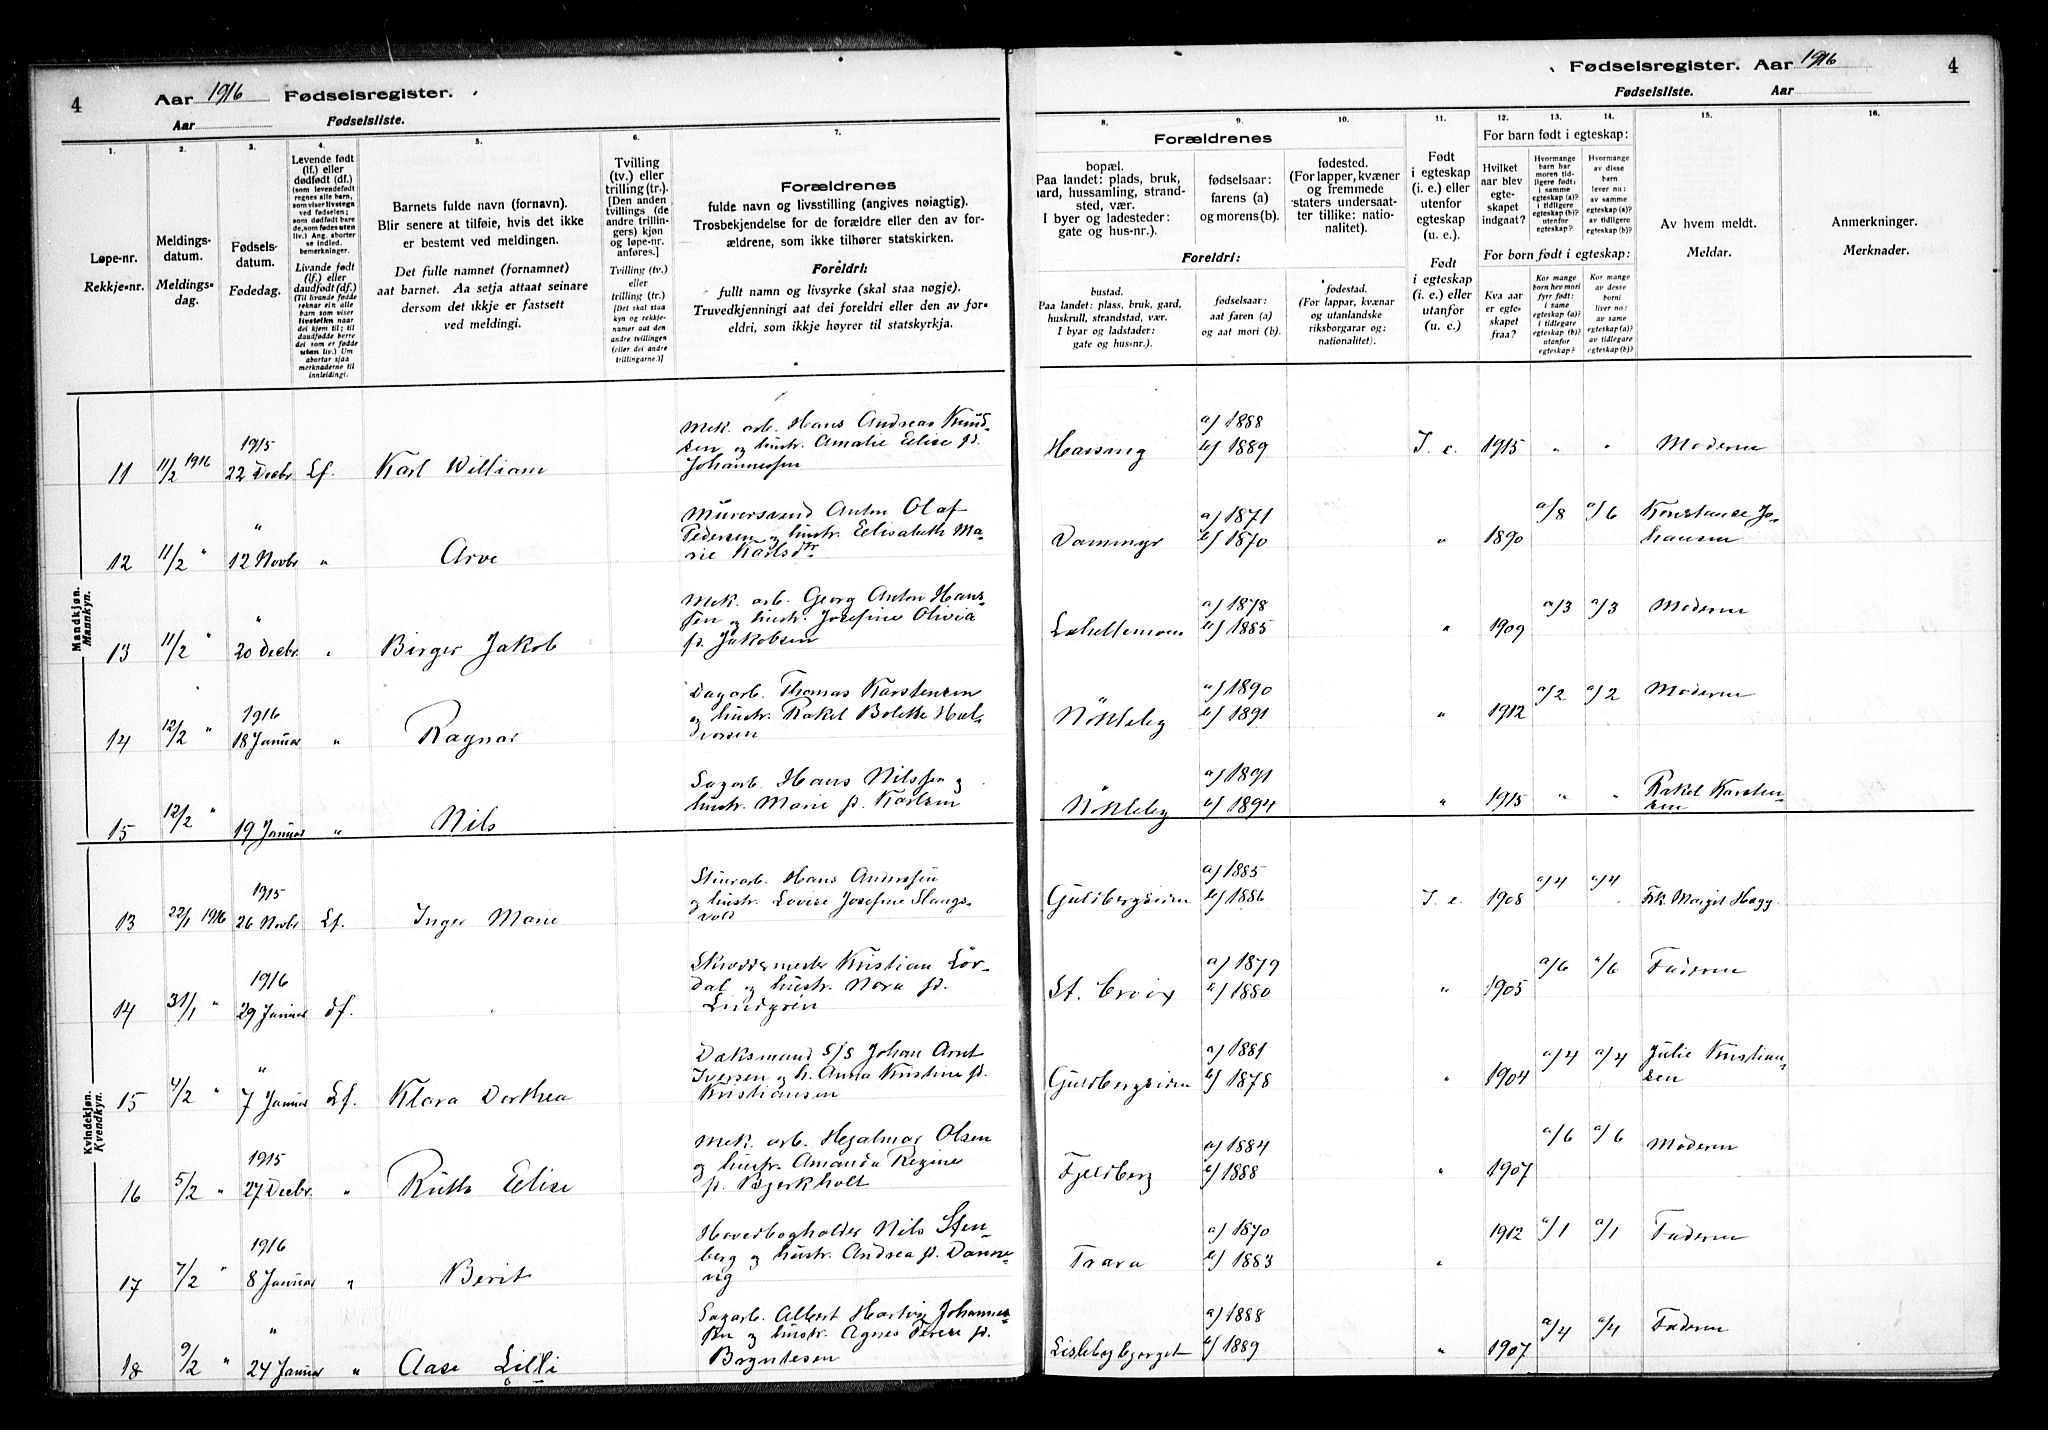 4
Aar 1916 Fødselsregister.
Aar Fødselsliste.
1.
2.
3.
4.
5.
6.
7.
Løpe-nr.
Rekkje-nr.
Meldings-
datum.
Meldings-
dag.
Fødsels-
datum.
Fødedag.
Levende født
(lf.) eller
dødfødt (df.)
(som levendefødt
regnes alle barn,
som viser livstegn
ved fødselen;
som dødfødt bare
de, som fødes uten
liv.) Ang. aborter
se indled.
bemerkninger.
Livande født
(lf.) eller
daudfødt (df.)
(Til livande fødde
reknar ein alle
barn som viser
livsteikn naar
dei kjem til; til
daudfødde berre
dei som er fødde
utan liv.) Um
abortar sjaa
merknaderne til
innleidingi.
Barnets fulde navn (fornavn).
Blir senere at tilføie, hvis det ikke
er bestemt ved meldingen.
Det fulle namnet (fornamnet)
aat barnet. Aa setja attaat seinare
dersom det ikkje er fastsett
ved meldingi.
Tvilling
(tv.) eller
trilling (tr.).
[Den anden
tvillings (de
andre trillin-
gers) kjøn
og løpe-nr.
anføres.]
Tvilling (tv.)
eller
trilling (tr.)
[Det skal staa
kyn og rekkje-
namer aat den
andre tvillingen
(eller dei andre
trillingarne.)]
Forældrenes
fulde navn og livsstilling (angives nøiagtig).
Trosbekjendelse for de forældre eller den av for-
ældrene, som ikke tilhører statskirken.
Foreldri:
fullt namn og livsyrke (skal staa nøgje).
Truvedkjenningi aat dei foreldri eller den av for-
eldri, som ikkje høyrer til statskyrkja.
Mandkjøn.
Mannkyn.
11 11/2 1916 1915 22 Decbr. Lf. Karl William
Mek. arb. Hans Andreas Knud-
sen og hustr. Amalie Elise f.
Johannessen
12 11/2 " " 12 Novbr " Arve
Murersvend Anton Olaf
Pedersen og hustr. Elisabeth Ma-
rie Karlsdtr
13 11/2 " " 20 Decbr. " Birger Jakob
Mek. arb. Georg Anton Hans-
sen og hustr. Josefine Olivia
f. Jakobsen
14 12/2 " 1916 18 Januar " Ragnar
Dagarb. Thomas Karstensen
og hustr. Rakel Bolette Hal-
vorsen
15 12/2 " 19 Januar " Nils
Sagarb. Hans Nilssen og
hustr. Marie f. Karlsen
Kvindekjøn.
Kvendkyn.
13 22/1 1916 1915 26 Novbr Lf. Inger Marie
Stuerarb. Hans Anderssen
og hustr. Lovise Josefine Slangs-
vold
14 31/1 " 1916 29 Januar df. "
Skræddermester Kristian Lör-
dal og hustr. Nora f.
Lindgrén
15 4/2 " " 7 Januar Lf. Klara Dorthea
Dæksmand S/S Johan Arnt
Iversen og h. Anna Kristine f.
Kristiansen
16 5/2 " 1915 27 Decbr. " Ruth Elise
Mek. arb. Hejalmar Olsen
og hustr. Amanda Regine
f. Bjerkholt
17 7/2 " 1916 8 Januar " Berit
Hovedbogholder Nils Sten-
berg og hustr. Andrea f. Danne-
vig
18 9/2 " " 24 Januar " Aase Lilli
Sagarb. Albert Hartvig Johannes-
sen og hustr. Agnes Terese f.
Bryntesen
Fødselsregister. Aar 1916
4
Fødselsliste. Aar
8.
9.
10.
11.
12.
13.
14.
15.
16.
Forældrenes
bopæl.
Paa landet: plads, bruk,
gard, hussamling, strand-
sted, vær.
I byer og ladesteder:
gate og hus-nr.).
fødselsaar:
farens (a)
og morens (b).
fødested.
(For lapper, kvæner
og fremmede
staters undersaat-
ter tillike: natio-
nalitet).
Foreldri:
bustad.
Paa landet: plass, bruk, gard,
huskrull, strandstad, vær.
I byar og ladstader:
gate og hus-nr.).
fødselsaar:
aat faren (a)
og aat mori (b).
fødestad.
(For lappar, kvænar
og utanlandske
riksborgarar og:
nationalitet).
Født
i egteskap
(i. e.) eller
utenfor
egteskap
(u. e.).
Født
i egteskap
(i. e.) eller
utanfor
(u. e.).
For barn født i egteskap:
Hvilket
aar blev
egte-
skapet
indgaat?
Hvormange
barn har
moren tid-
ligere født:
i samme
egteskap (a)?
utenfor
egteskap (b)?
Hvormange
av disse
barn
lever nu:
av samme
egteskap (a)?
av tidligere
egteskap (b)?
For born født i egteskap:
Kva aar
er egte-
skapet
fraa?
Kor mange
born hev mori
fyrr født:
i same
egteskap (a)?
i tidlegare
egteskap (b)?
utanfor
egteskap?
Kor mange
av desse
borni
liver no:
av same
egteskap (a)?
av tidlegare
egteskap (b)?
Av hvem meldt.
Meldar.
Anmerkninger.
Merknader.
Hassing a) 1888 b) 1889 I. e. 1915 " " Moderen
Dammyr a) 1871 b) 1870 " 1890 a/8 a/6 Konstanse Jo-
hansen
Lahellemoen a) 1878 b) 1885 " 1909 a/3 a/3 Moderen
Nökleby a) 1890 b) 1891 " 1912 a/2 a/2 Moderen
Nökleby a) 1891 b) 1894 " 1915 " " Rakel Karsten-
sen
Guldbergsiden a) 1885 b) 1886 I. e. 1908 a/4 a/4 Frk. Margit Hagg.
St. Croix a) 1879 b) 1880 " 1905 a/6 a/6 Faderen
Guldbergsiden a) 1881 b) 1878 " 1904 a/4 a/4 Julie Kristian-
sen
Fjeldberg a) 1884 b) 1888 " 1907 a/6 a/6 Moderen
Trara a) 1870 b) 1883 " 1912 a/1 a/1 Faderen
Lislebybjerget a) 1888 b) 1889 " 1907 a/4 a/4 Faderen